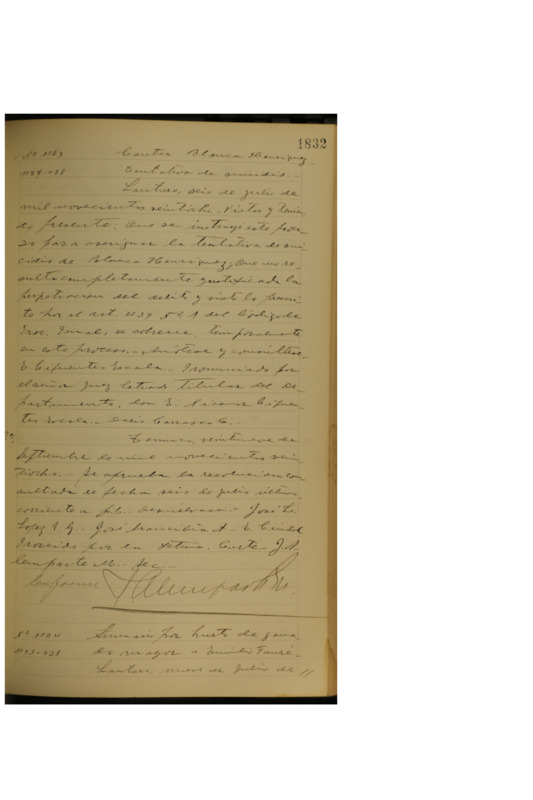 1832
Nº 1123 Contra Blanca Henriquez
1184-928 Tentativa de suicidio
Lautaro, seis de julio de
mil novecientos veintiocho. Vistos y tenien-
do presente; Que se instruyó este proce-
so para averiguar la tentativa de sui-
cidio de Blanca Henriquez; Que no re-
sulta completamente justificada la
perpetracion del delito y visto lo prescri-
to por el art. 439 Nº 1 del Código de
Proc. Penal, se sobresee temporalmente
en este proceso. Anótese y consúltese.
E. Cifuentes Zocala. Pronunciado por
el señor Juez Letrado titular del De-
partamento, don E. Nicanor Cifuen-
tes Carrasco C.
2ª Temuco, veintinueve de
Septiembre de mil novecientos vein-
tiocho. Se aprueba la resolucion con-
sultada de fecha seis de julio último,
corriente a fs. Devuélvase. José L.
Lopez U. G. José Arancibia A.
Proveido por la Iltma. Corte. J. A.
Campasto M. Sec.
Conforme
Nº 1124 Sumario por hurto de gana-
1193-928 do mayor a Emilio Fauré
Lautaro, nueve de Julio de //